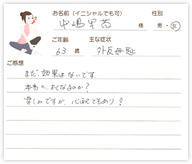 お名前（イニシャルでも可） 性別
中嶋 様 男・女
ご年齢 主な症状
63歳 外反母趾
ご感想
まだ効果はないです。
本当に良くなるのか？
楽しみですが、心配でもあり？